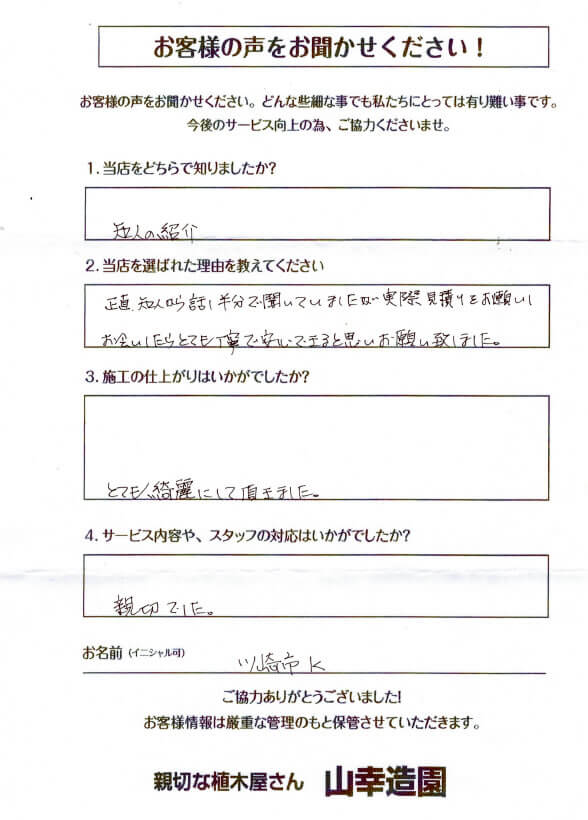 お客様の声をお聞かせください！
お客様の声をお聞かせください。どんな些細な事でも私たちにとっては有り難い事です。
今後のサービス向上の為、ご協力くださいませ。
1. 当店をどちらで知りましたか?
知人の紹介
2. 当店を選ばれた理由を教えてください
正直、知人から話し半分で聞いていましたが実際見積りをお願いし
お会いしたらとても丁寧で安心できると思いお願い致しました。
3. 施工の仕上がりはいかがでしたか?
とても綺麗にして頂きました。
4. サービス内容や、スタッフの対応はいかがでしたか?
親切でした。
お名前 (イニシャル可) 川崎市 K
ご協力ありがとうございました!
お客様情報は厳重な管理のもと保管させていただきます。
親切な植木屋さん 山幸造園